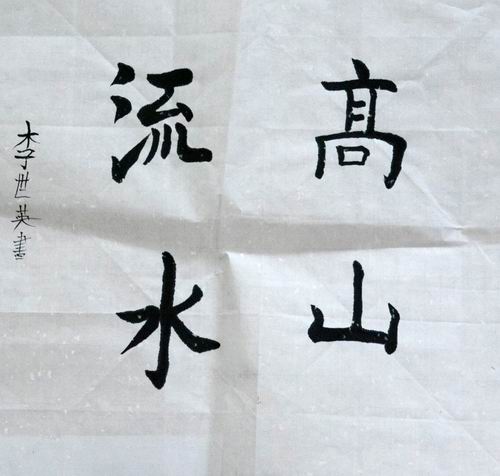 髙山
流水
李世英書